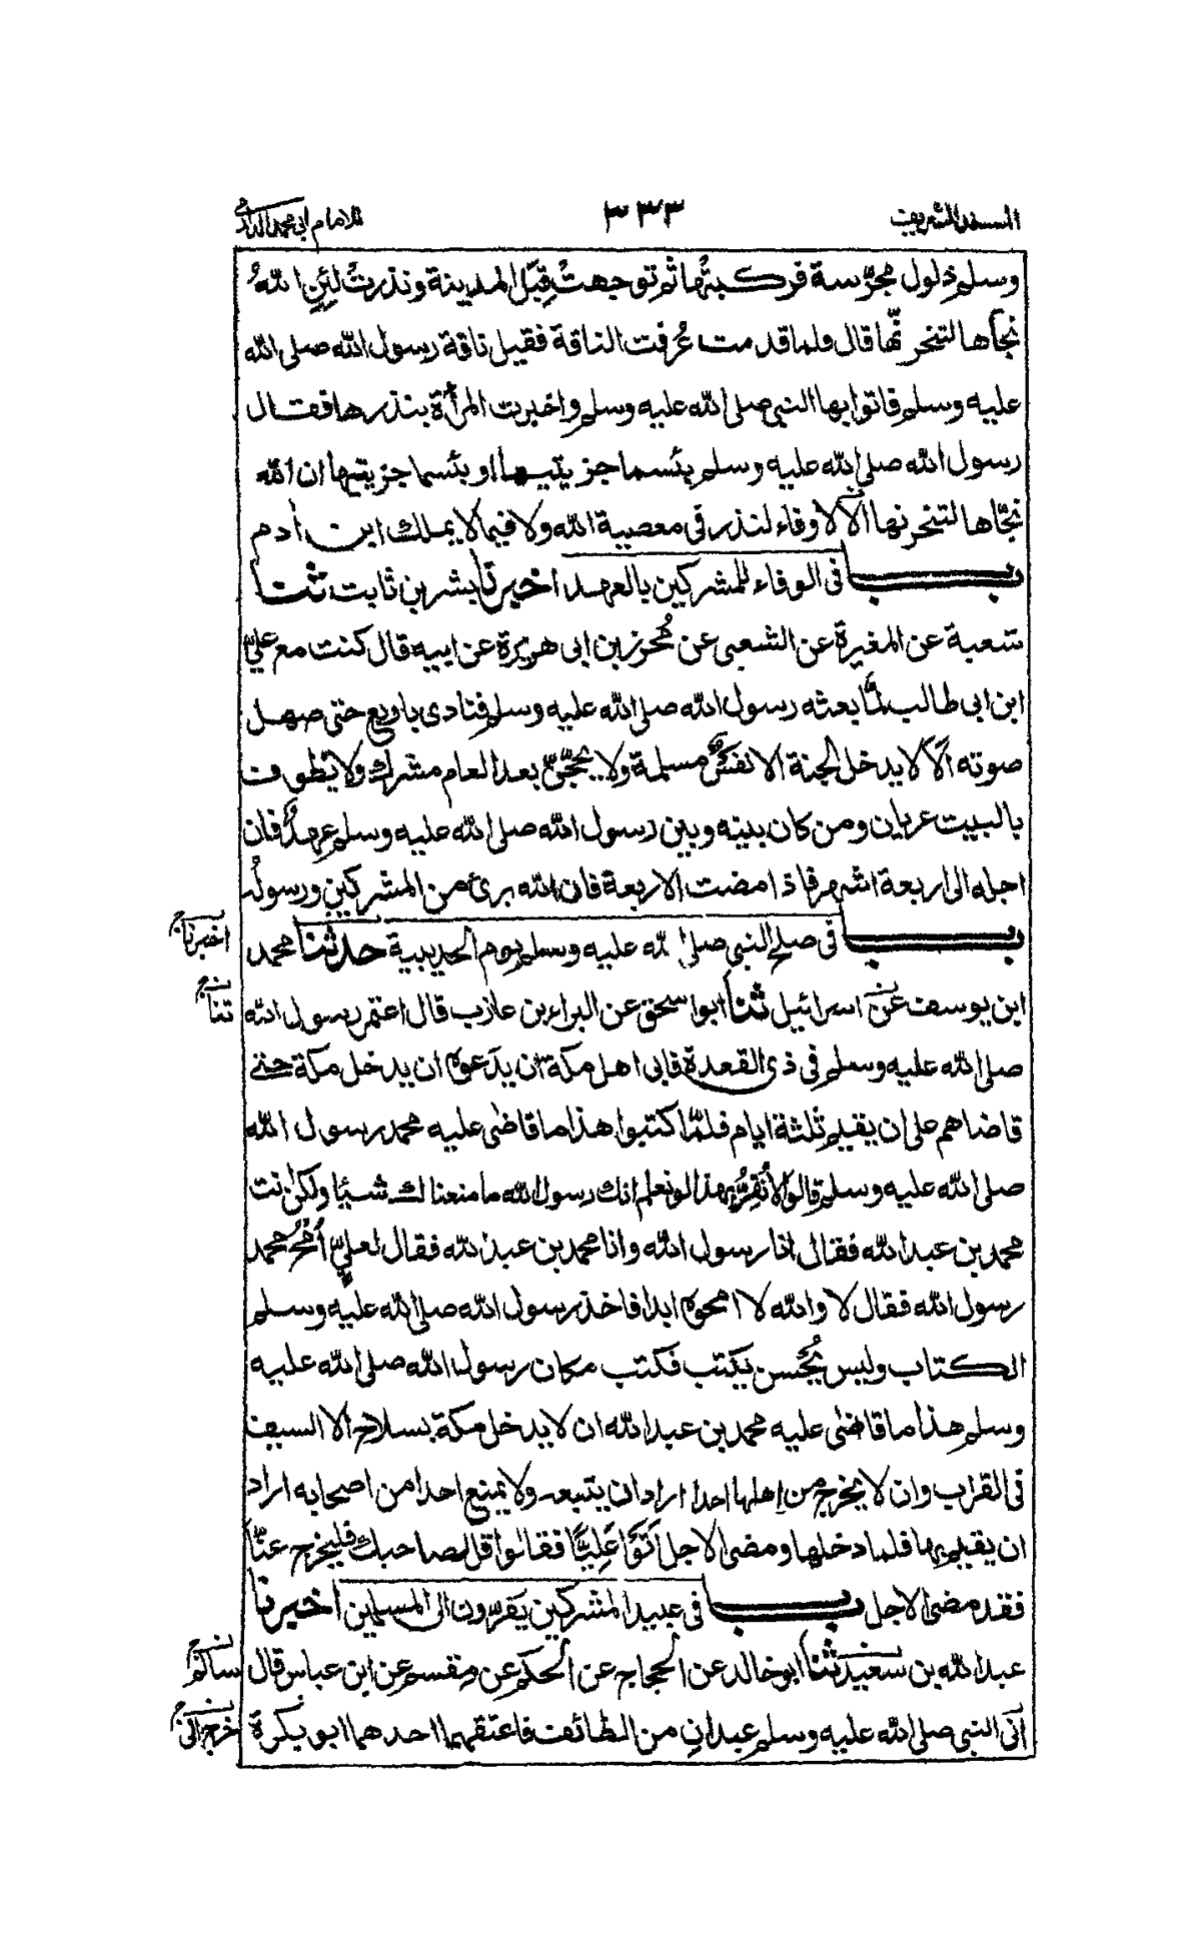 المسند الشريف ٣٣٣ للامام ابي محمد الدارمي
وسلم ذلول مجرّسة فركبتُها ثم توجهتُ قِبَل المدينة ونذرتُ لئِن اللهُ
نجّاها لتنحرنّها قال فلما قدمت عُرفت الناقة فقيل ناقة رسول الله صلى الله
عليه وسلم فاتوا بها النبي صلى الله عليه وسلم واخبرت المرأة بنذرها فقال
رسول الله صلى الله عليه وسلم بئسما جزيتيها او بئسما جزيتيها ان الله
نجّاها لتنحرنها الا لا وفاء لنذر فى معصية الله ولا فيما لا يملك ابن ادم
بــاب فى الوفاء للمشركين بالعهد اخبرنا بشر بن ثابت ثنا
شعبة عن المغيرة عن الشعبى عن مُحرز بن ابى هريرة عن ابيه قال كنت مع عليّ
ابن ابى طالب لمّا بعثه رسول الله صلى الله عليه وسلم فنادى باربع حتى صهل
صوته اَلَا لا يدخل الجنة الا نفسٌ مسلمة ولا يحجّنّ بعد العام مشرك ولا يطوف
بالبيت عريان ومن كان بينه وبين رسول الله صلى الله عليه وسلم عهدٌ فان
اجله الى اربعة اشهر فاذا مضت الاربعة فان الله برئ من المشركين ورسولُه
بــاب فى صلح النبي صلى الله عليه وسلم يوم الحديبية حدثنا محمد
اخبرنا
ابن يوسف عن اسرائيل ثنا ابو اسحق عن البراء بن عازب قال اعتمر رسول الله
ثنا
صلى الله عليه وسلم فى ذى القعدة فابى اهل مكة ان يدَعوه ان يدخل مكة حتى
قاضاهم على ان يقيم ثلثة ايام فلمّا كتبوا هذا ما قاضى عليه محمد رسول الله
صلى الله عليه وسلم قالوا لا نُقِرُّ بهذا لو نعلم انك رسول الله ما منعناك شيئا ولكن انت
محمد بن عبد الله فقال انا رسول الله وانا محمد بن عبد الله فقال لعليّ اُمْحُ محمد
رسول الله فقال لا والله لا امحوه ابدا فاخذ رسول الله صلى الله عليه وسلم
الكتاب وليس يُحْسن يكتب فكتب مكان رسول الله صلى الله عليه
وسلم هذا ما قاضى عليه محمد بن عبد الله ان لا يدخل مكة بسلاح الا السيف
فى القراب وان لا يخرج من اهلها احدا اراد ان يتبعه ولا يمنع احدا من اصحابه اراد
ان يقيم بها فلما دخلها ومضى الاجل اَتَوْا عَلِيًّا فقالوا قل لصاحبك فليخرج عنّا
فقد مضى الاجل بــاب فى عبيد المشركين يفرّون الى المسلمين اخبرنا
عبد الله بن سعيد ثنا ابو خالد عن الحجاج عن الحكم عن مقسم عن ابن عباس قال
اتى النبي صلى الله عليه وسلم عبدانِ من الطائف فاعتقهما احدهما ابو بكرة